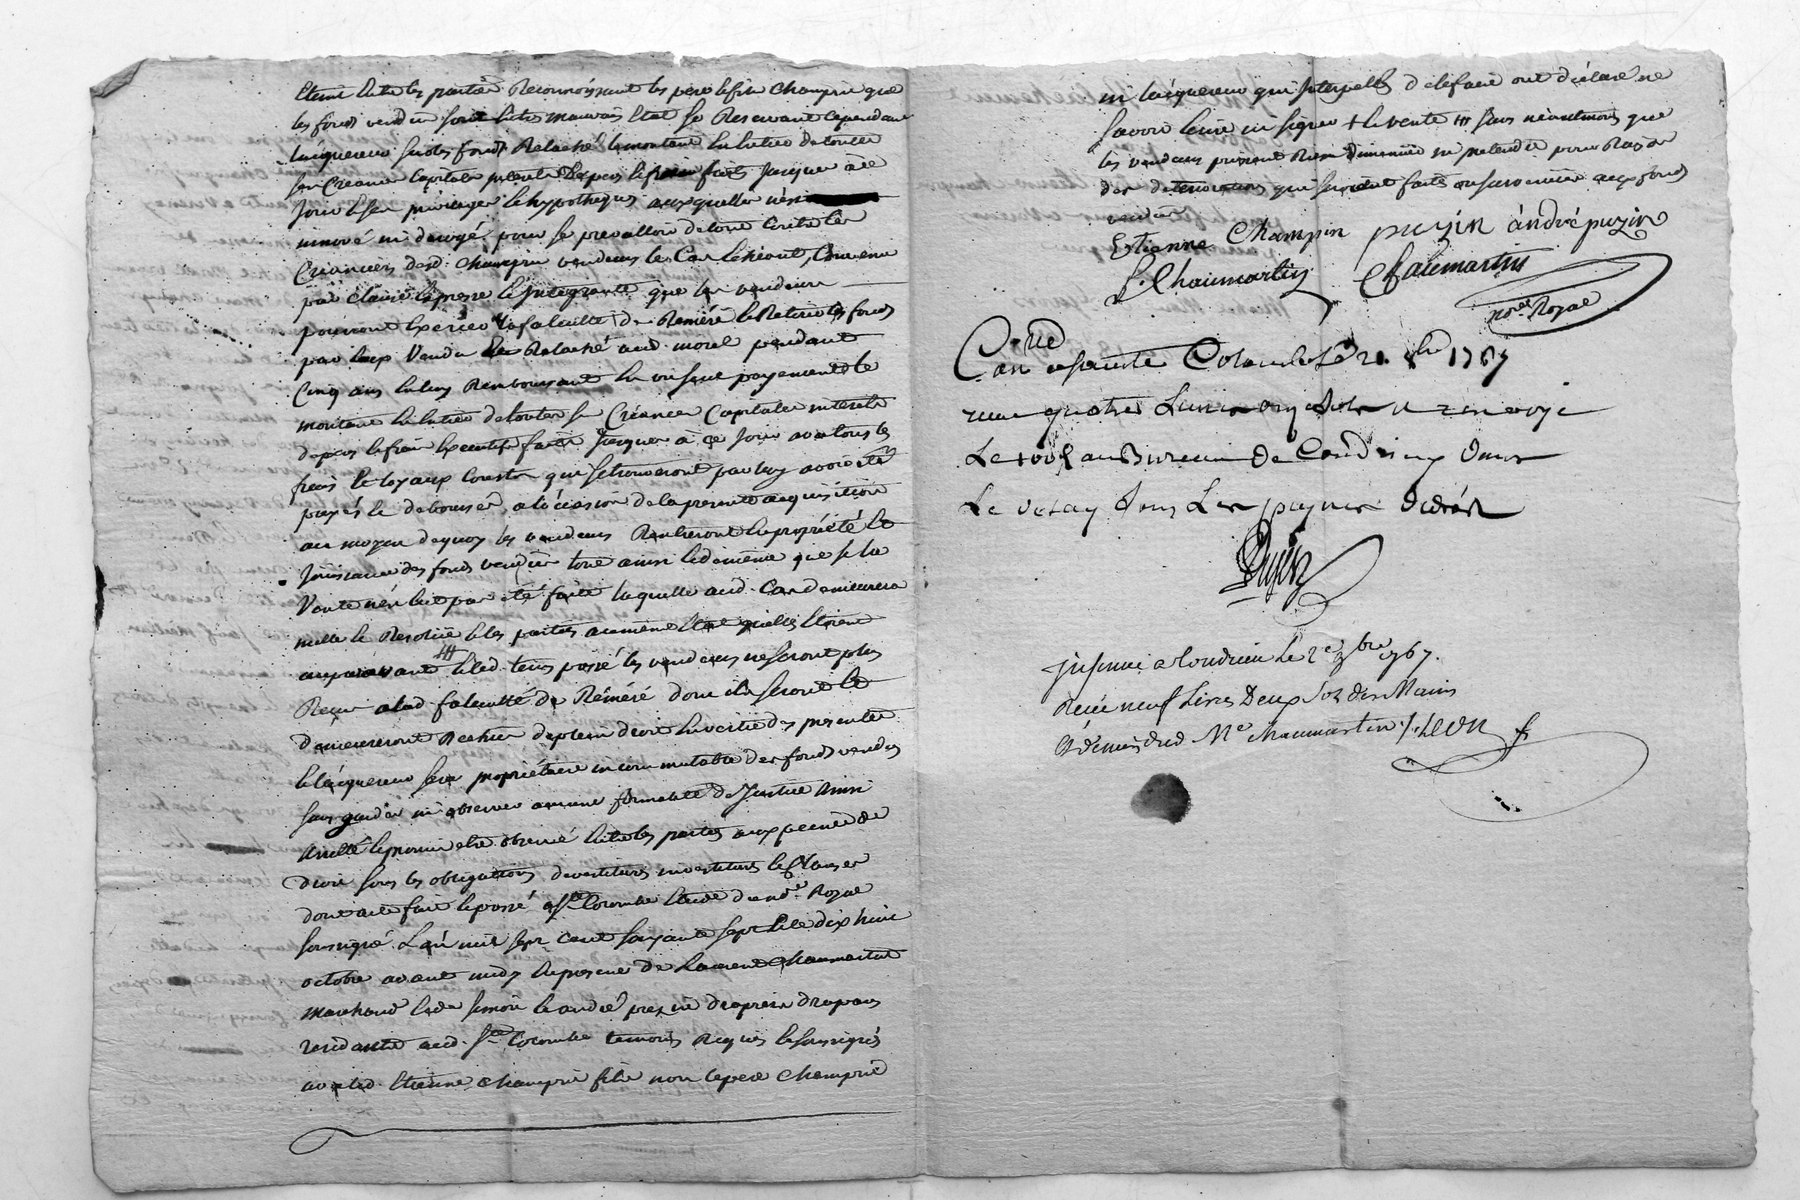 Étant entre les parties Reconnoissant les pere et fils Champin que
les fonds vendu sont en tres mauvais état se Reservant cependant
l'acquereur sur les fonds Relaché le montant en entier de toutes
ses Creances Capitales interets depens et frais faits jusques a ce
jour et ses privileges et hypotheques auxquelles n'est
innové ni derogé pour se prevalloir de tout contre les
Creanciers desd. Champin vendeurs le Cas echeant, Convenu
par clause expresse et integrante que les vendeurs
pourront exercer la faculté de Réméré et Retirer les fonds
par eux Vendu et Relaché aud. morel pendant
Cinq ans en luy Remboursant en un seul payement le
montant en entier de toutes ses Creances Capitales interets
depens et frais executifs faits jusques à ce jour avec tous les
frais et loyaux coustes qui se trouveront par luy avoir été
payés et deboursés a l'occasion de la presente acquisition
au moyen de quoy les vendeurs Rentreront en propriété et
jouissance des fonds vendus tout ainsi et de même que si la
Vente n'en eut pas été faite laquelle aud. Cas demeurera
nulle et Resolüe et les parties au même état qu'elles étoient
auparavant et led. tems passé les vendeurs ne seront plus
Reçus a lad. faculté de Réméré dont ils seront et
demeureront dechus de plein droit en vertu des presentes
et l'acquereur sera propriétaire incommutable des fonds vendus
sans garder ni observer aucune formalité de Justice Ainsi
arrêté et promis etre observé entre les parties aux peines de
droit sous les obligations devestitures investitures et Clauses
dont acte fait et passé a Ste Colombe etude du nore Royal
soussigné L'an mil sept cent soixante sept et le dix huit
octobre avant midy en presence de Laurent Chaumartin
marchand et de simon et andré puzin drapiers drapans
residants aud. Ste Colombe temoins Requis et soussignés
avec led. Etienne Champin fils non le pere Champin
ni l'acquereur qui interpellés de le faire ont déclaré ne
savoir écrire ni signer + et vente ### sans néantmoins que
les vendeurs puissent Rien diminuer ni pretendre pour Raison
des deteriorations qui seroient faites ou survenües aux fonds
vendus
Etienne Champin puzin àndré puzin
L. Chaumartin Chaumartin
nore Royal
Con a sainte Colombe le 21 8bre 1767
reçu quatre Livres onze sols et renvoyé
Le tout au Bureau de Condrieu dans
Le delay sous Les peynes de droit
Puzin
insinué a Condrieu le 2e 9bre 1767.
Reçu neuf Livres Deux sols des Mains
et deniers dud Me Chaumartin Leon